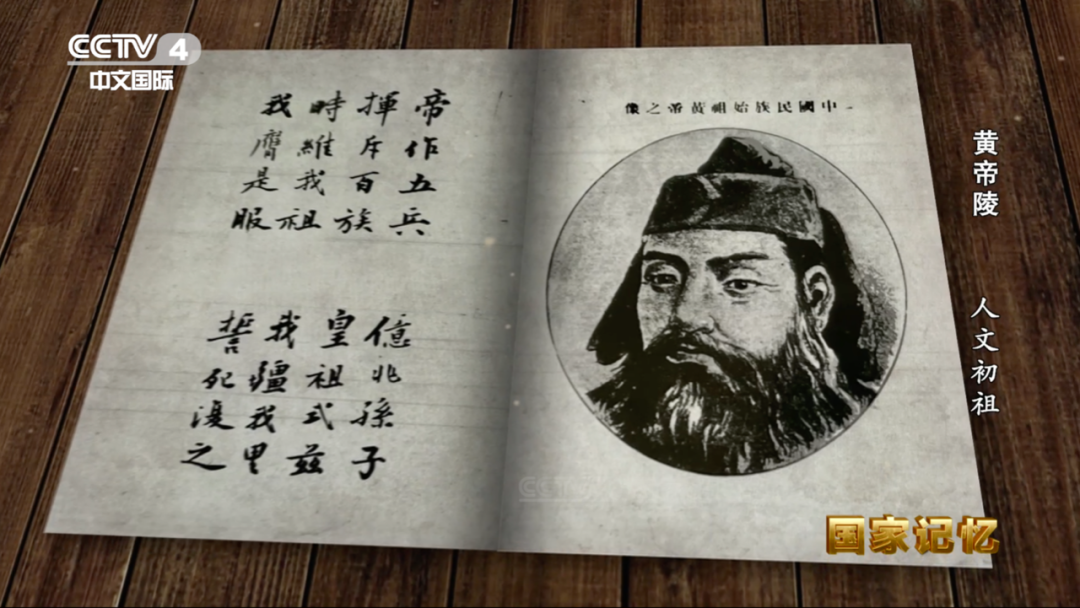 CCTV 4
中文国际
中國民族始祖黃帝之像
帝作五兵
揮斥百族
時維我祖
我膺是服
億兆孫子
皇祖式茲
我疆我里
誓死復之
黄帝陵 人文初祖
CCTV
国家记忆